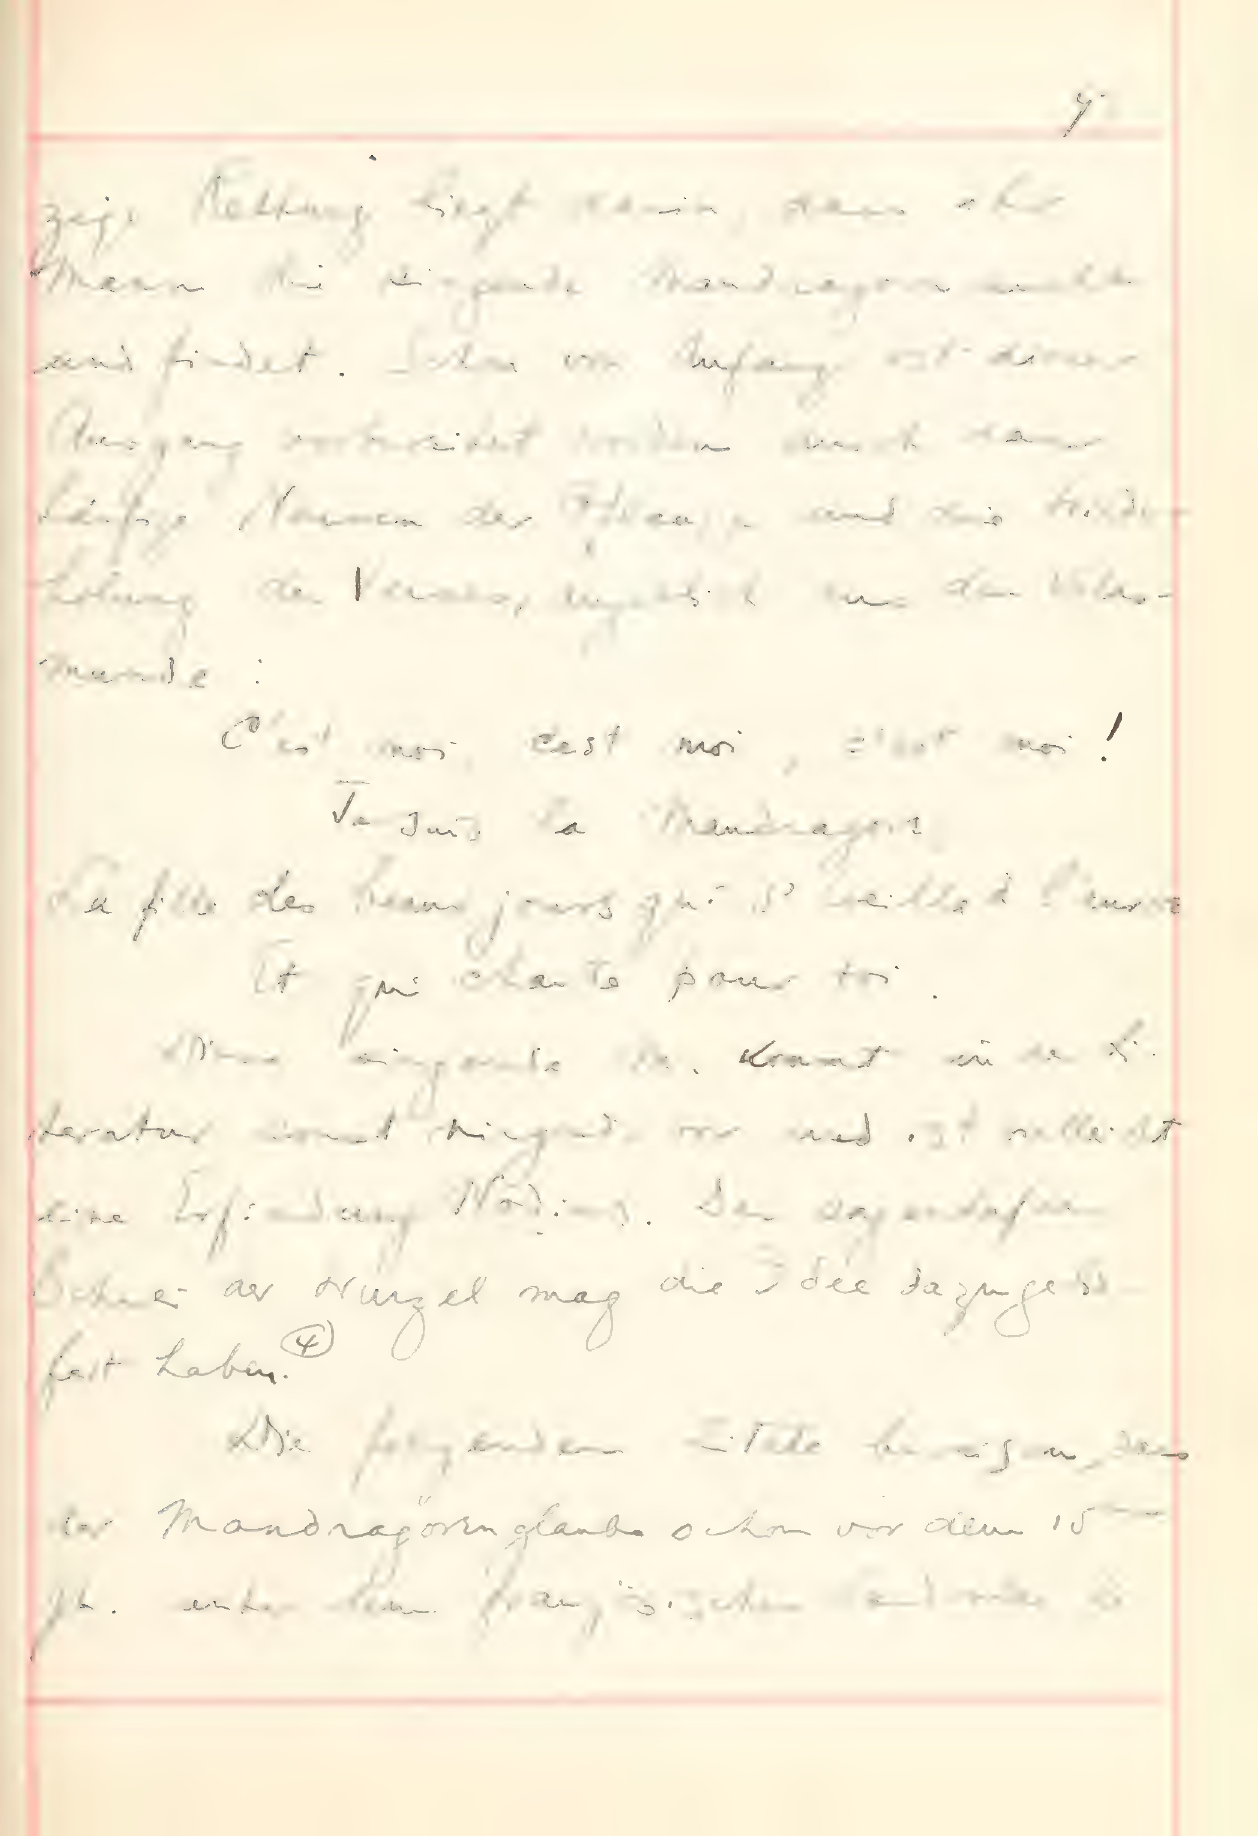 9.
zige Rettung liegt darin, dass ihr
Mann die singende Mandragore sucht
und findet. Schon von Anfang ist dieser
Ausgang vorbereitet worden durch das
häufige Nennen der Pflanze und die Wieder-
holung des Verses, angeblich aus dem Volks-
munde :
C'est moi, c'est moi, c'est moi !
Je suis la Mandragore,
La fille des beaux jours qui s'éveille à l'aurore
Et qui chante pour toi.
Diese singende M. kommt in der Li-
teratur sonst nirgends vor und ist vielleicht
eine Erfindung Nodiers. Der sagenhafte
Schrei der Wurzel mag die Idee dazu gelie-
fert haben. (4)
Die folgenden Zitate beweisen, dass
der Mandragorenglaube schon vor dem 15ten
Jh. unter dem französischen Landvolke